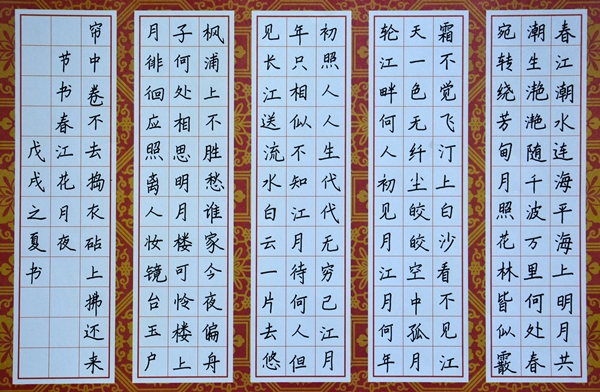 春江潮水连海平海上明月共
潮生滟滟随千波万里何处春
宛转绕芳甸月照花林皆似霰
霜不觉飞汀上白沙看不见江
天一色无纤尘皎皎空中孤月
轮江畔何人初见月江月何年
初照人人生代代无穷已江月
年只相似不知江月待何人但
见长江送流水白云一片去悠
枫浦上不胜愁谁家今夜偏舟
子何处相思明月楼可怜楼上
月徘徊应照离人妆镜台玉户
帘中卷不去捣衣砧上拂还来
节书春江花月夜
戊戌之夏书